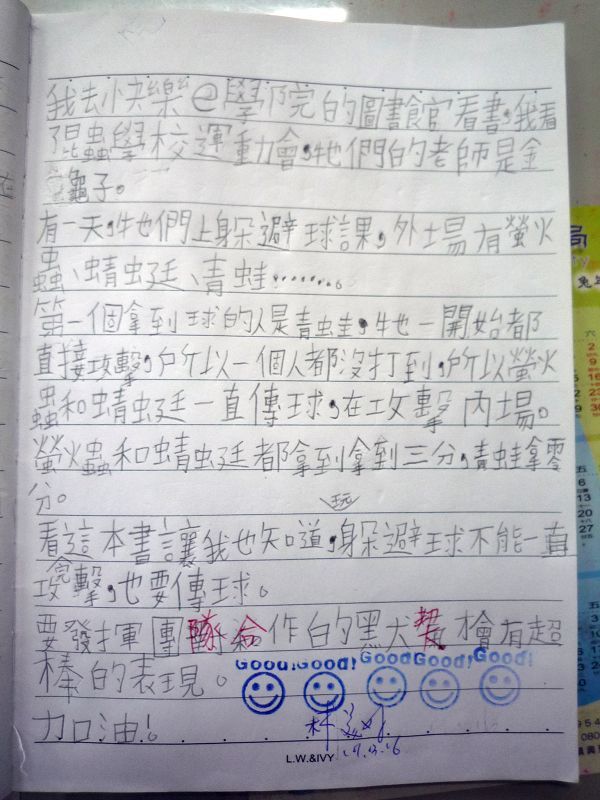 我去快樂e學院的圖書館看書,我看
昆蟲學校運動會,牠們的老師是金
龜子。
有一天,牠們上躲避球課,外場有螢火
蟲、蜻蜓、青蛙……。
第一個拿到球的人是青蛙,牠一開始都
直接攻擊,所以一個人都沒打到,所以螢火
蟲和蜻蜓一直傳球,在攻擊內場。
螢火蟲和蜻蜓都拿到拿到三分,青蛙拿零
分。
玩
看這本書讓我也知道,躲避球不能一直
攻擊,也要傳球。
要發揮團隊合作的默契才會有超
棒的表現。
Good! Good! Good! Good! Good!
加油!
L.W.&IVY
局
兔年
六
五